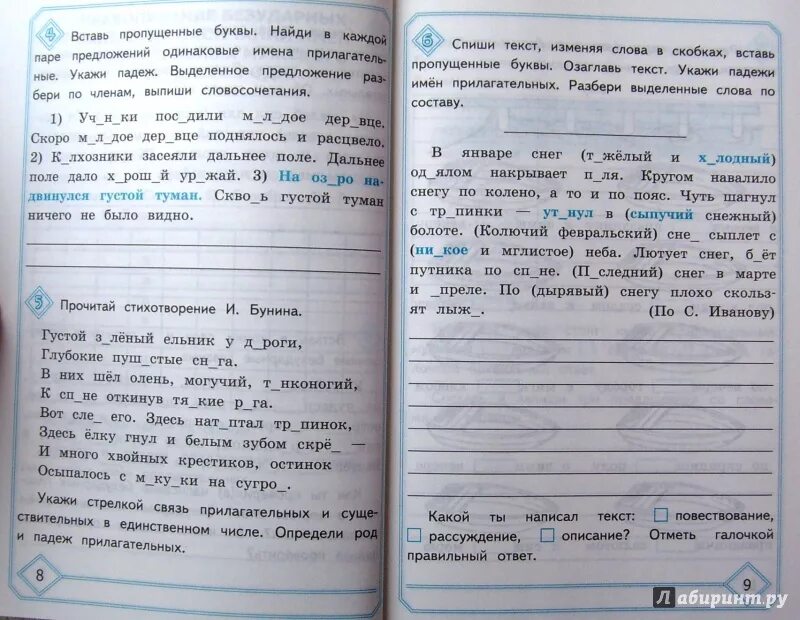 4 Вставь пропущенные буквы. Найди в каждой
паре предложений одинаковые имена прилагатель-
ные. Укажи падеж. Выделенное предложение раз-
бери по членам, выпиши словосочетания.
1) Уч_н_ки пос_дили м_л_дое дер_вце.
Скоро м_л_дое дер_вце поднялось и расцвело.
2) К_лхозники засеяли дальнее поле. Дальнее
поле дало х_рош_й ур_жай. 3) На оз_ро на-
двинулся густой туман. Скво_ь густой туман
ничего не было видно.
5 Прочитай стихотворение И. Бунина.
Густой з_лёный ельник у д_роги,
Глубокие пуш_стые сн_га.
В них шёл олень, могучий, т_нконогий,
К сп_не откинув тя_кие р_га.
Вот сле_ его. Здесь нат_птал тр_пинок,
Здесь ёлку гнул и белым зубом скрё_ —
И много хвойных крестиков, остинок
Осыпалось с м_ку_ки на сугро_.
Укажи стрелкой связь прилагательных и суще-
ствительных в единственном числе. Определи род
и падеж прилагательных.
8
6 Спиши текст, изменяя слова в скобках, вставь
пропущенные буквы. Озаглавь текст. Укажи падежи
имён прилагательных. Разбери выделенные слова по
составу.
В январе снег (т_жёлый и х_лодный)
од_ялом накрывает п_ля. Кругом навалило
снегу по колено, а то и по пояс. Чуть шагнул
с тр_пинки — ут_нул в (сыпучий снежный)
болоте. (Колючий февральский) сне_ сыплет с
(ни_кое и мглистое) неба. Лютует снег, б_ёт
путника по сп_не. (П_следний) снег в марте
и _преле. По (дырявый) снегу плохо скольз-
ят лыж_. (По С. Иванову)
Какой ты написал текст: повествование,
рассуждение, описание? Отметь галочкой
правильный ответ.
9
Лабиринт.ру